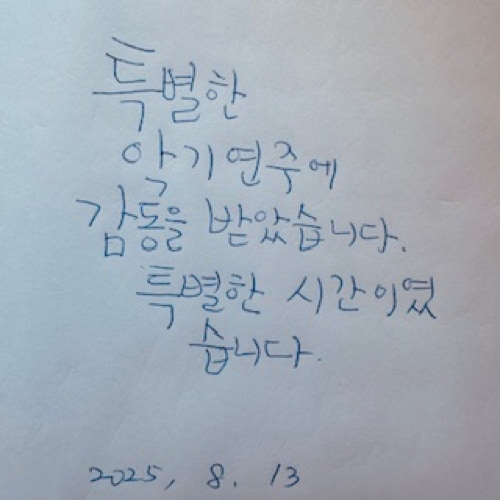 특별한
악기연주에
감동을 받았습니다.
특별한 시간이였
습니다.
2025, 8. 13